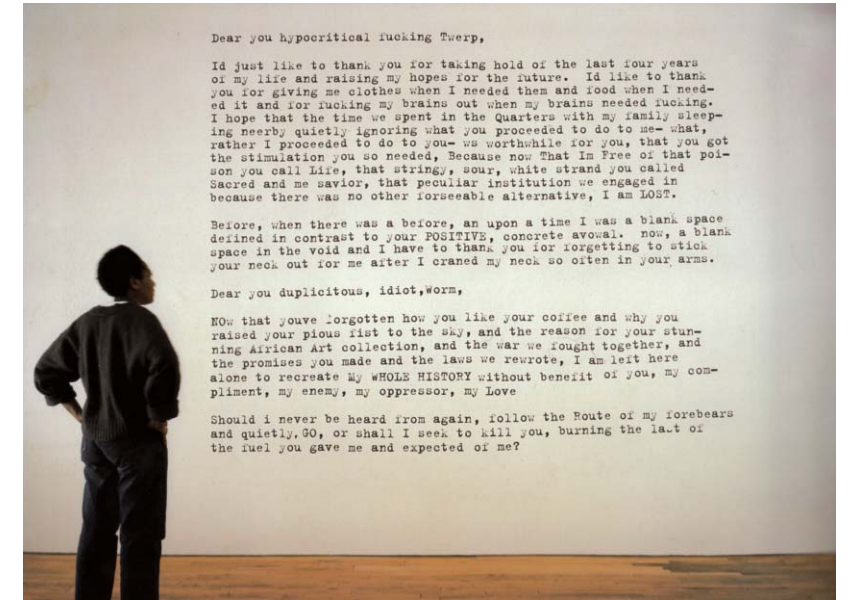 Dear you hypocritical fucking Twerp,
Id just like to thank you for taking hold of the last four years
of my life and raising my hopes for the future.  Id like to thank
you for giving me clothes when I needed them and food when I need-
ed it and for fucking my brains out when my brains needed fucking.
I hope that the time we spent in the Quarters with my family sleep-
ing neerby quietly ignoring what you proceeded to do to me- what,
rather I proceeded to do to you- ws worthwhile for you, that you got
the stimulation you so needed, Because now That Im Free of that poi-
son you call Life, that stringy, sour, white strand you called
Sacred and me savior, that peculiar institution we engaged in
because there was no other forseeable alternative, I am LOST.
Before, when there was a before, an upon a time I was a blank space
defined in contrast to your POSITIVE, concrete avowal.  now, a blank
space in the void and I have to thank you for forgetting to stick
your neck out for me after I craned my neck so often in your arms.
Dear you duplicitous, idiot,Worm,
NOw that youve forgotten how you like your coffee and why you
raised your pious fist to the sky, and the reason for your stun-
ning African Art collection, and the war we fought together, and
the promises you made and the laws we rewrote, I am left here
alone to recreate My WHOLE HISTORY without benefit of you, my com-
pliment, my enemy, my oppressor, my Love
Should i never be heard from again, follow the Route of my forebears
and quietly,GO, or shall I seek to kill you, burning the last of
the fuel you gave me and expected of me?